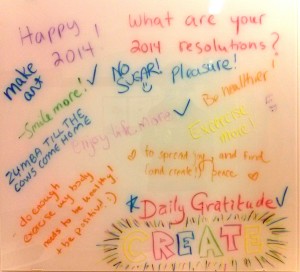 Happy
2014!
What are your
2014 resolutions?
make
art
NO
SUGAR!
Pleasure!
Be healthier!
Smile more!
Enjoy life more
Exercise
more!
ZUMBA TILL THE
COWS COME HOME
to spread joy and fund
(and create) peace
do enough
exercise my body
needs to be healthy!
+ be positive! :)
*Daily Gratitude
CREATE